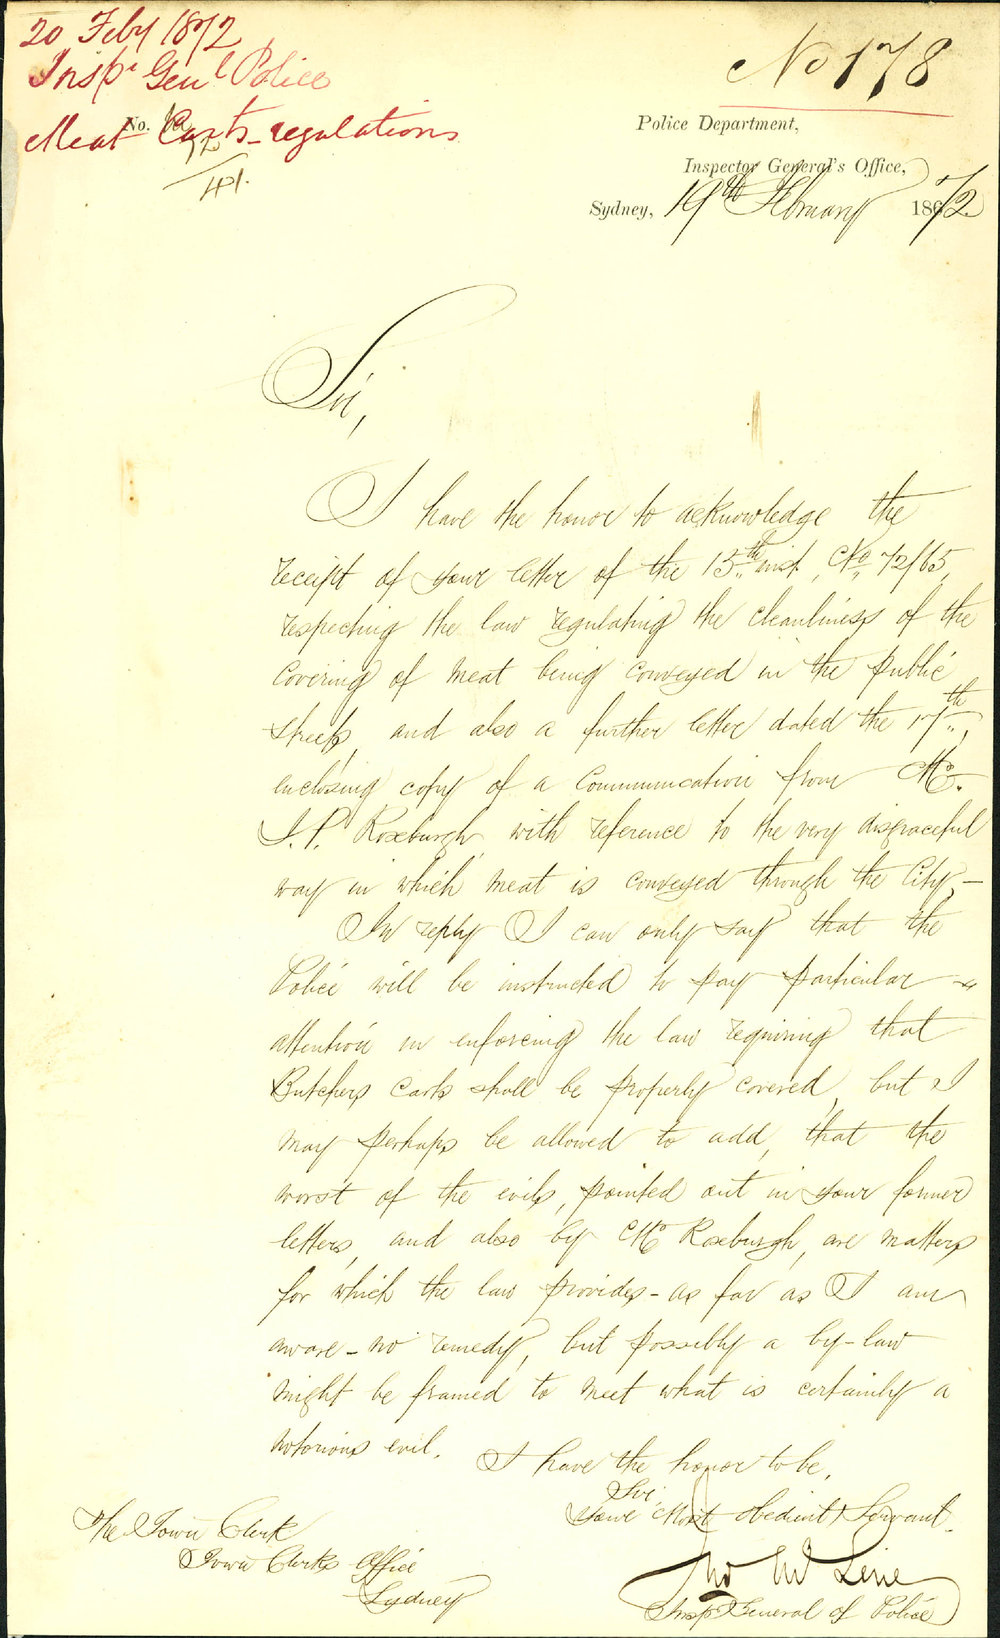 20 Feby 1872
Inspr Genl Police
Meat Carts - regulations
No. 72
141.
No 178
Police Department,
Inspector General's Office,
Sydney, 19th February 1872
Sir,
I have the honor to acknowledge the
receipt of your letter of the 15th inst, No. 72/65,
respecting the law regulating the cleanliness of the
covering of meat being conveyed in the public
streets, and also a further letter dated the 17th,
enclosing copy of a communication from Mr.
J. P. Roxburgh, with reference to the very disgraceful
way in which meat is conveyed through the City,-
In reply I can only say that the
Police will be instructed to pay particular
attention in enforcing the law requiring that
Butchers carts shall be properly covered, but I
may perhaps be allowed to add, that the
worst of the evils, pointed out in your former
letters, and also by Mr Roxburgh, are matters
for which the law provides - as far as I am
aware - no remedy, but possibly a by-law
might be framed to meet what is certainly a
notorious evil.
I have the honor to be,
Sir,
Your Most Obedient Servant.
Jno McLerie
Insp General of Police
The Town Clerk
Town Clerks Office
Sydney